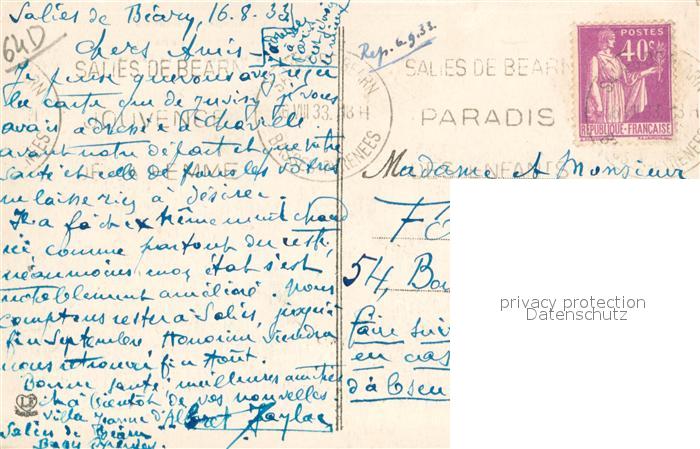 Salies de Béarn, 16.8.33
64D
Chers Amis
Rep. 6.9.33.
Je pense que vous avez reçu
la carte que de Juvisy je vous
avais adressée à Chaville
avant notre départ et que votre
santé et celle de tous les vôtres
ne laisse rien à désirer.
Il a fait extrêmement chaud
ici, comme partout du reste,
néanmoins mon état s'est
notablement amélioré. Nous
comptons rester à Salies, jusqu'à
fin Septembre Honorine viendra
nous retrouver fin Août.
Bonne santé, meilleures amitiés
et à bientôt de vos nouvelles
Villa Jeanne d'Albret
Salies de Béarn
Basses Pyrénées
SALIES DE BEARN
SOUVENEZ
DE FEMME
VIII 33. 18H
BASSES PYRENEES
SALIES DE BEARN
PARADIS
DES ENFANTS
POSTES
40c
REPUBLIQUE-FRANÇAISE
Madame et Monsieur
54,
faire suivre
en cas
d'absen
privacy protection
Datenschutz